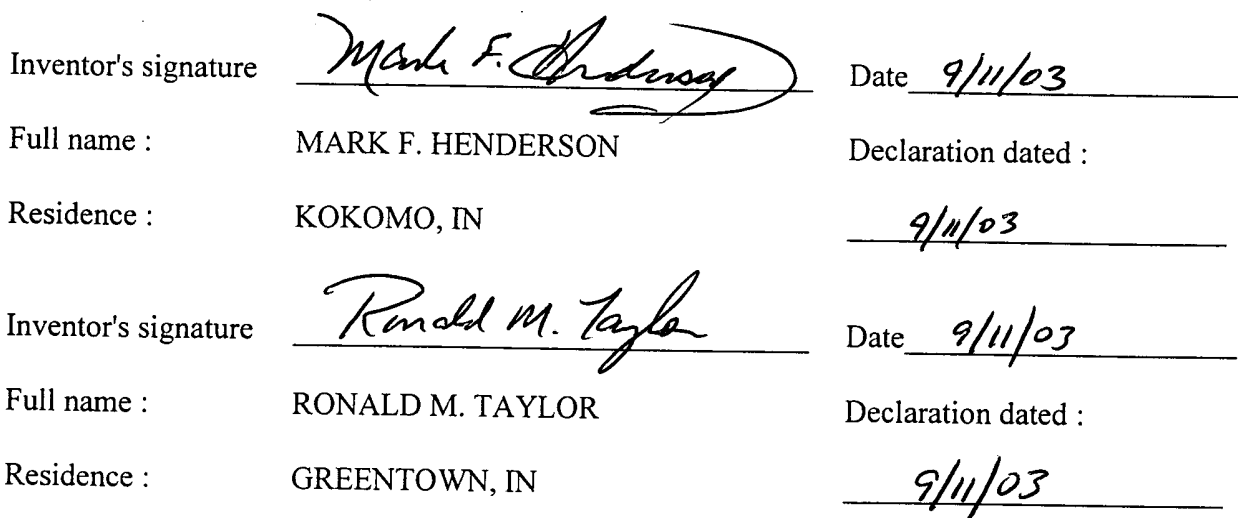 Inventor's signature Mark F. Henderson Date 9/11/03
Full name : MARK F. HENDERSON Declaration dated :
Residence : KOKOMO, IN 9/11/03
Inventor's signature Ronald M. Taylor Date 9/11/03
Full name : RONALD M. TAYLOR Declaration dated :
Residence : GREENTOWN, IN 9/11/03